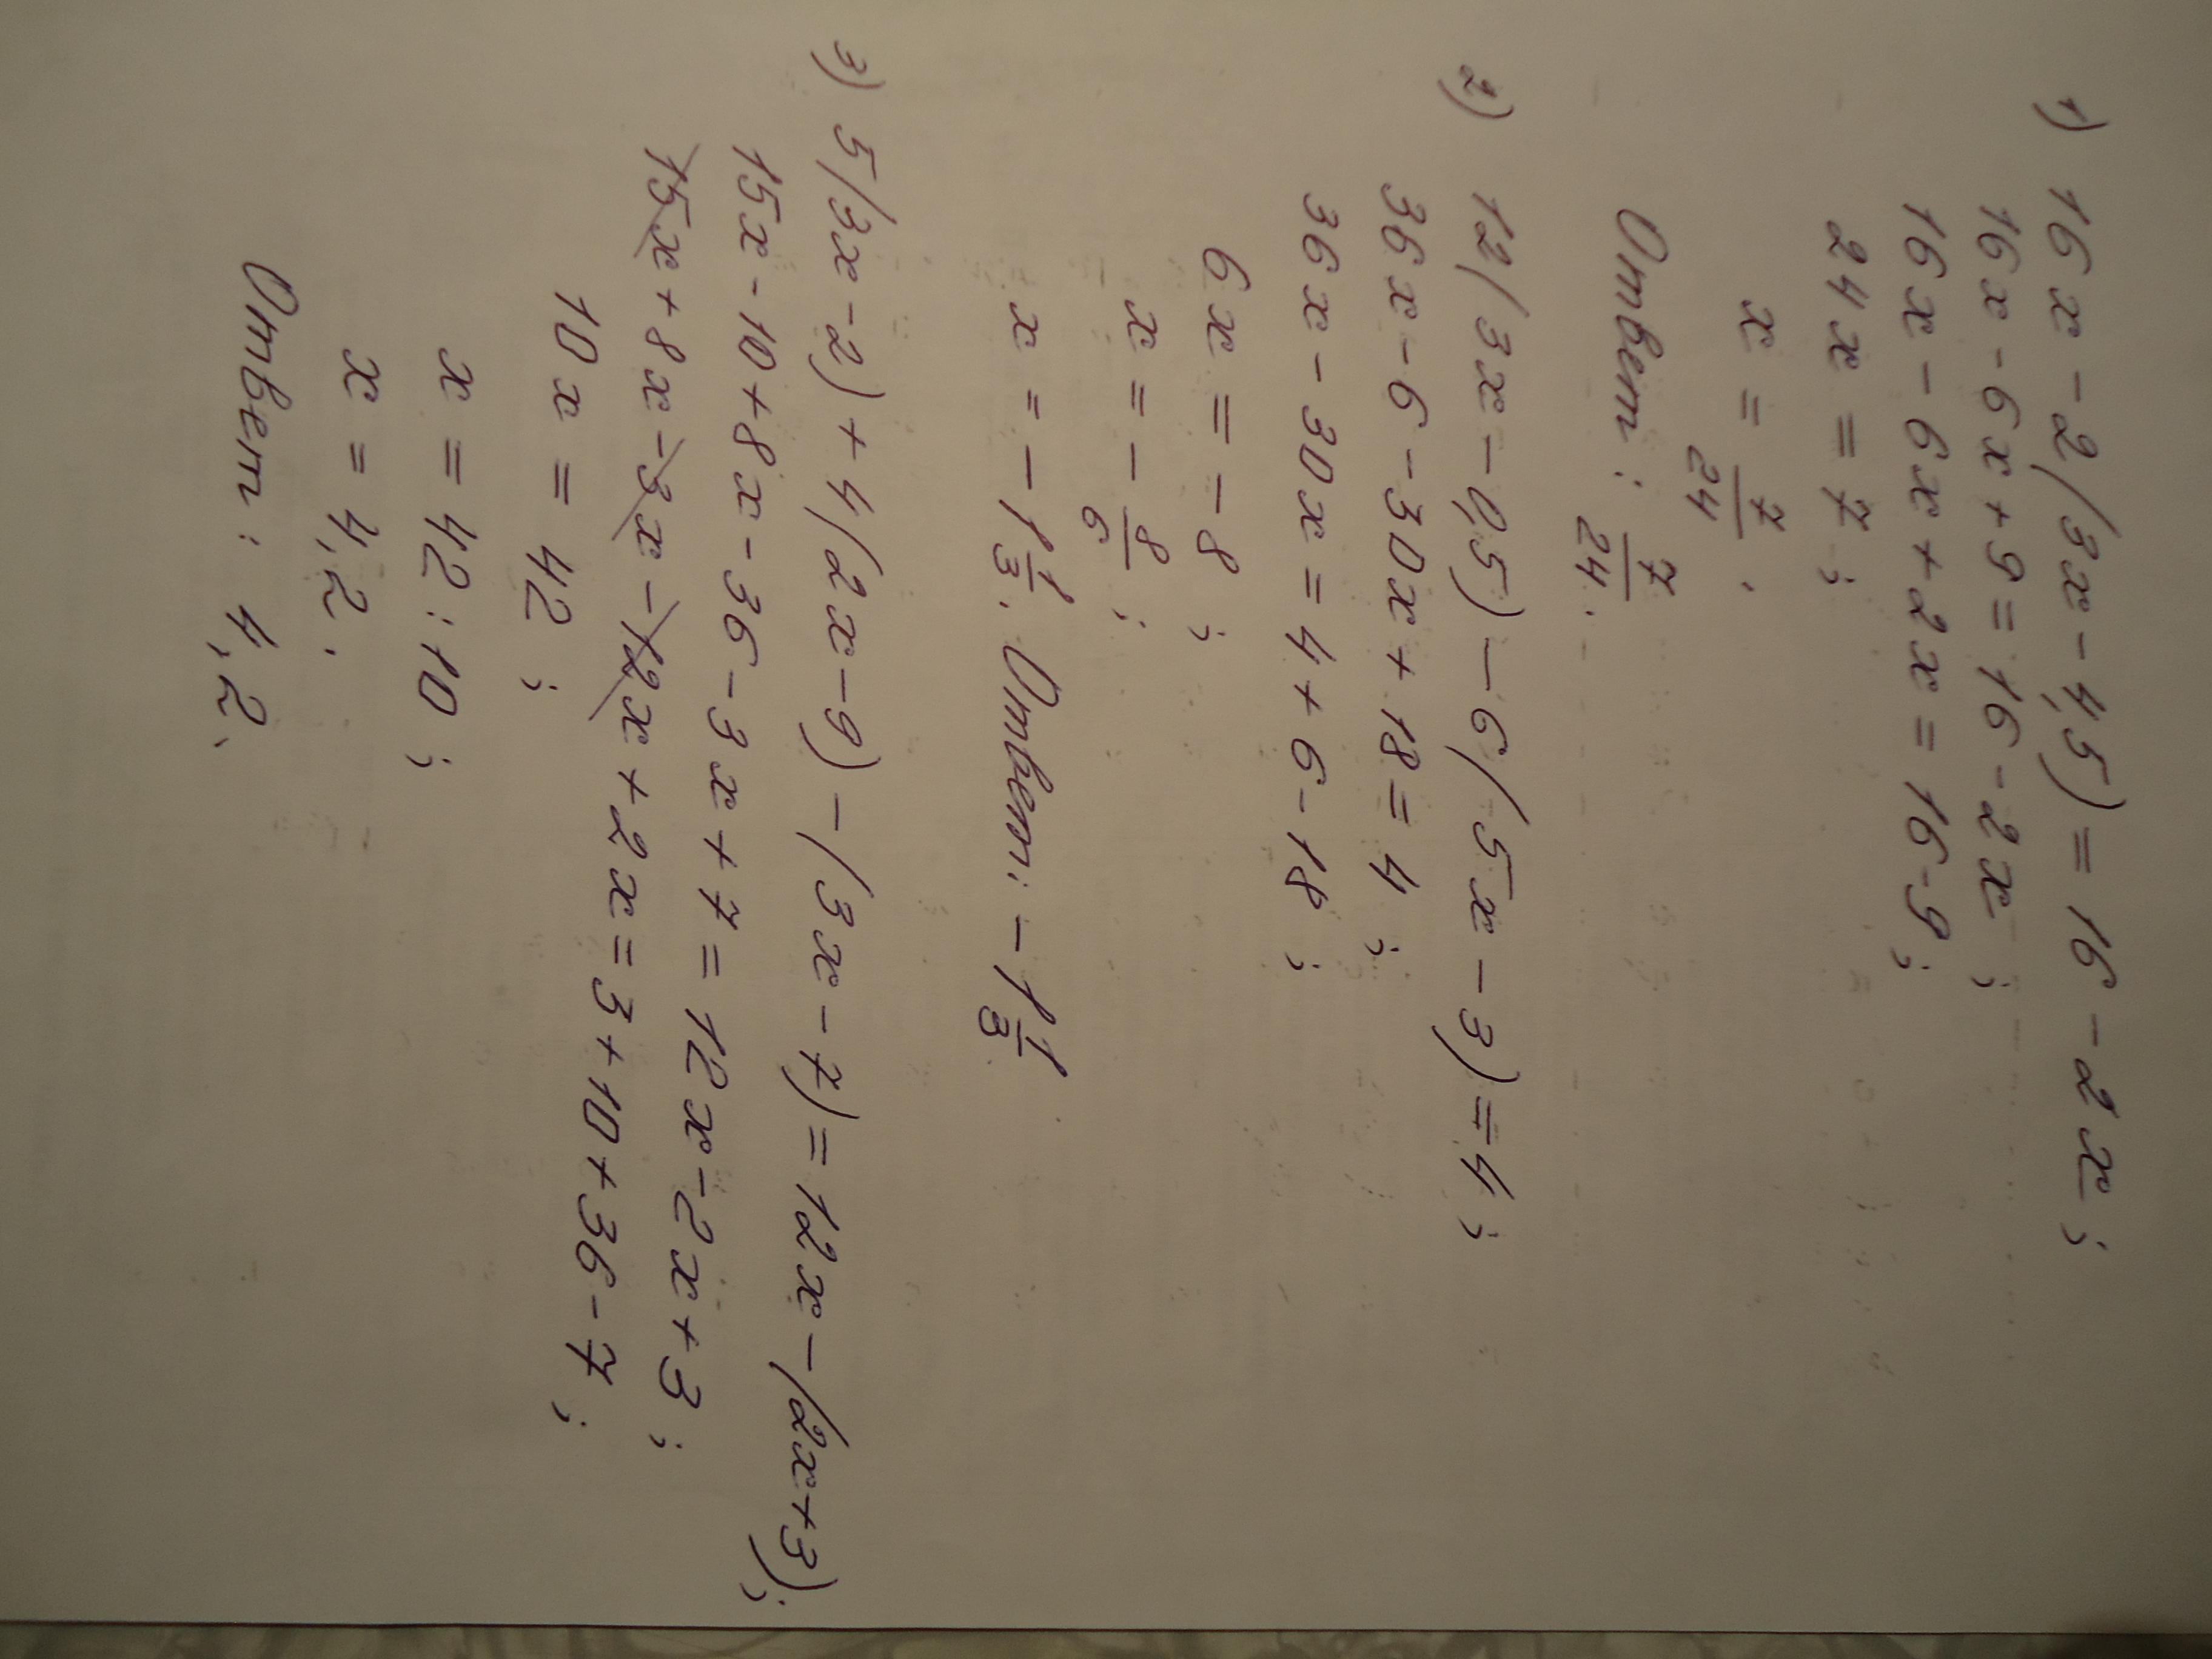 1) 16x - 2(3x - 4,5) = 16 - 2x ;
16x - 6x + 9 = 16 - 2x ;
16x - 6x + 2x = 16 - 9 ;
24x = 7 ;
x = 7/24 .
Ответ : 7/24 .
2) 12(3x - 0,5) - 6(5x - 3) = 4 ;
36x - 6 - 30x + 18 = 4 ;
36x - 30x = 4 + 6 - 18 ;
6x = -8 ;
x = - 8/6 ;
x = - 1 1/3 . Ответ: - 1 1/3
3) 5(3x - 2) + 4(2x - 9) - (3x - 7) = 12x - (2x + 3) ;
15x - 10 + 8x - 36 - 3x + 7 = 12x - 2x + 3 ;
15x + 8x - 3x - 12x + 2x = 3 + 10 + 36 - 7 ;
10x = 42 ;
x = 42 : 10 ;
x = 4,2 .
Ответ : 4,2.